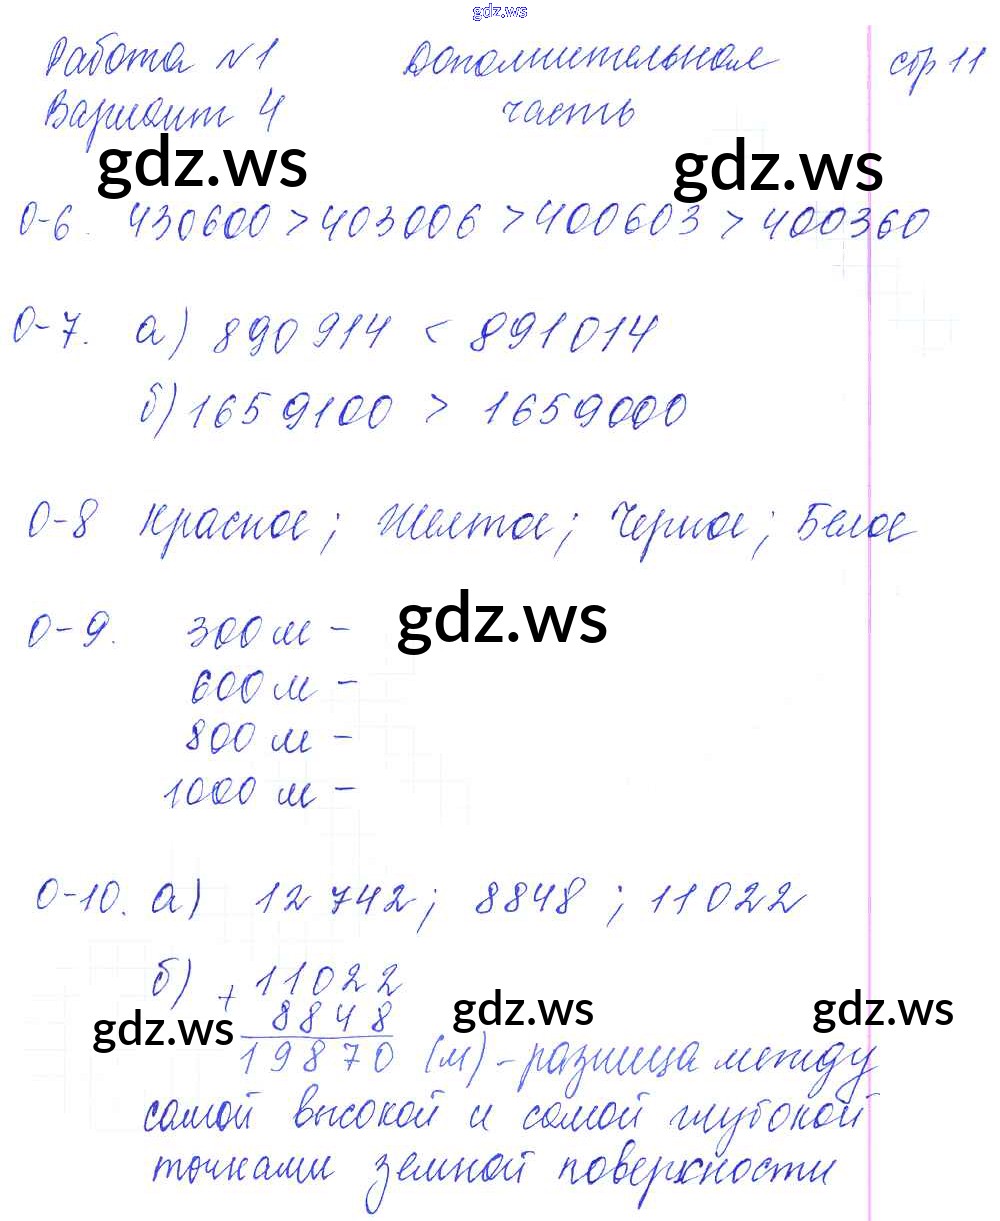 gdz.ws
Работа №1 Дополнительная стр 11
Вариант 4 часть
gdz.ws gdz.ws
О-6. 430600 > 403006 > 400603 > 400360
О-7. а) 890914 < 891014
б) 1659100 > 1659000
О-8 Красное; Желтое; Черное; Белое
gdz.ws
О-9. 300 м -
600 м -
800 м -
1000 м -
О-10. а) 12 742; 8848; 11022
б) + 11022
8848
gdz.ws gdz.ws gdz.ws
19870 (м) - разница между
самой высокой и самой глубокой
точками земной поверхности